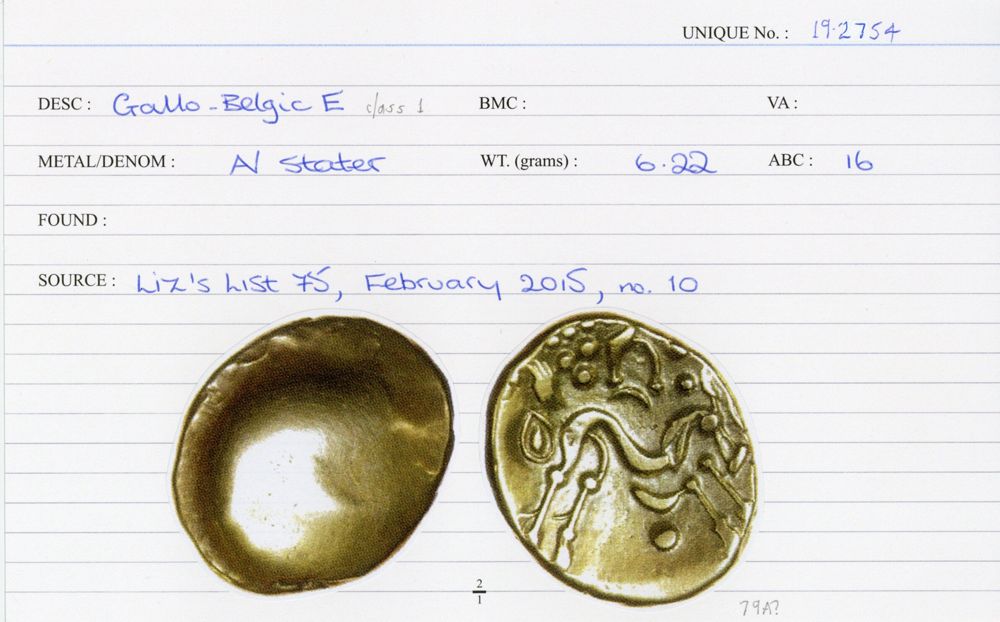 UNIQUE No. : 19.2754
DESC : Gallo-Belgic E class 1 BMC : VA :
METAL/DENOM : AV Stater WT. (grams) : 6.22 ABC : 16
FOUND :
SOURCE : Liz's List 75, February 2015, no. 10
2
1
79A?